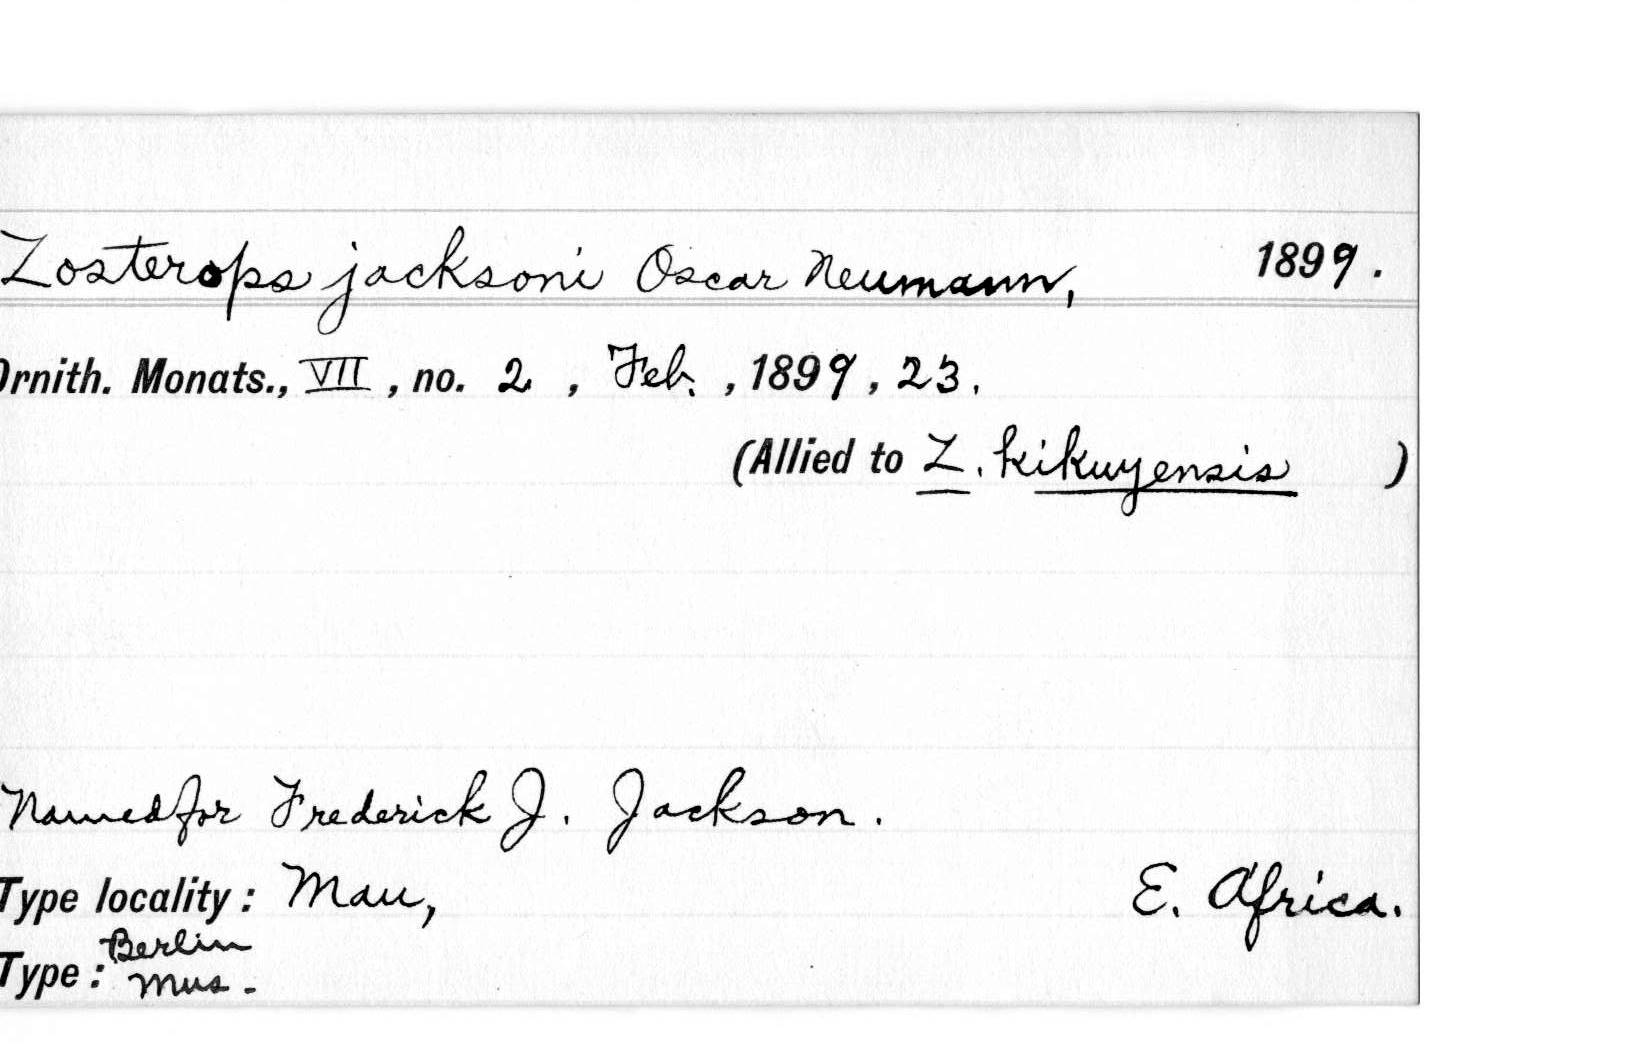 Zosterops jacksoni Oscar Neumann, 1899.
Ornith. Monats., VII, no. 2, Feb., 1899, 23.
(Allied to Z. kikuyensis )
Named for Frederick J. Jackson.
Type locality: Mau, E. Africa.
Type: Berlin
Mus.